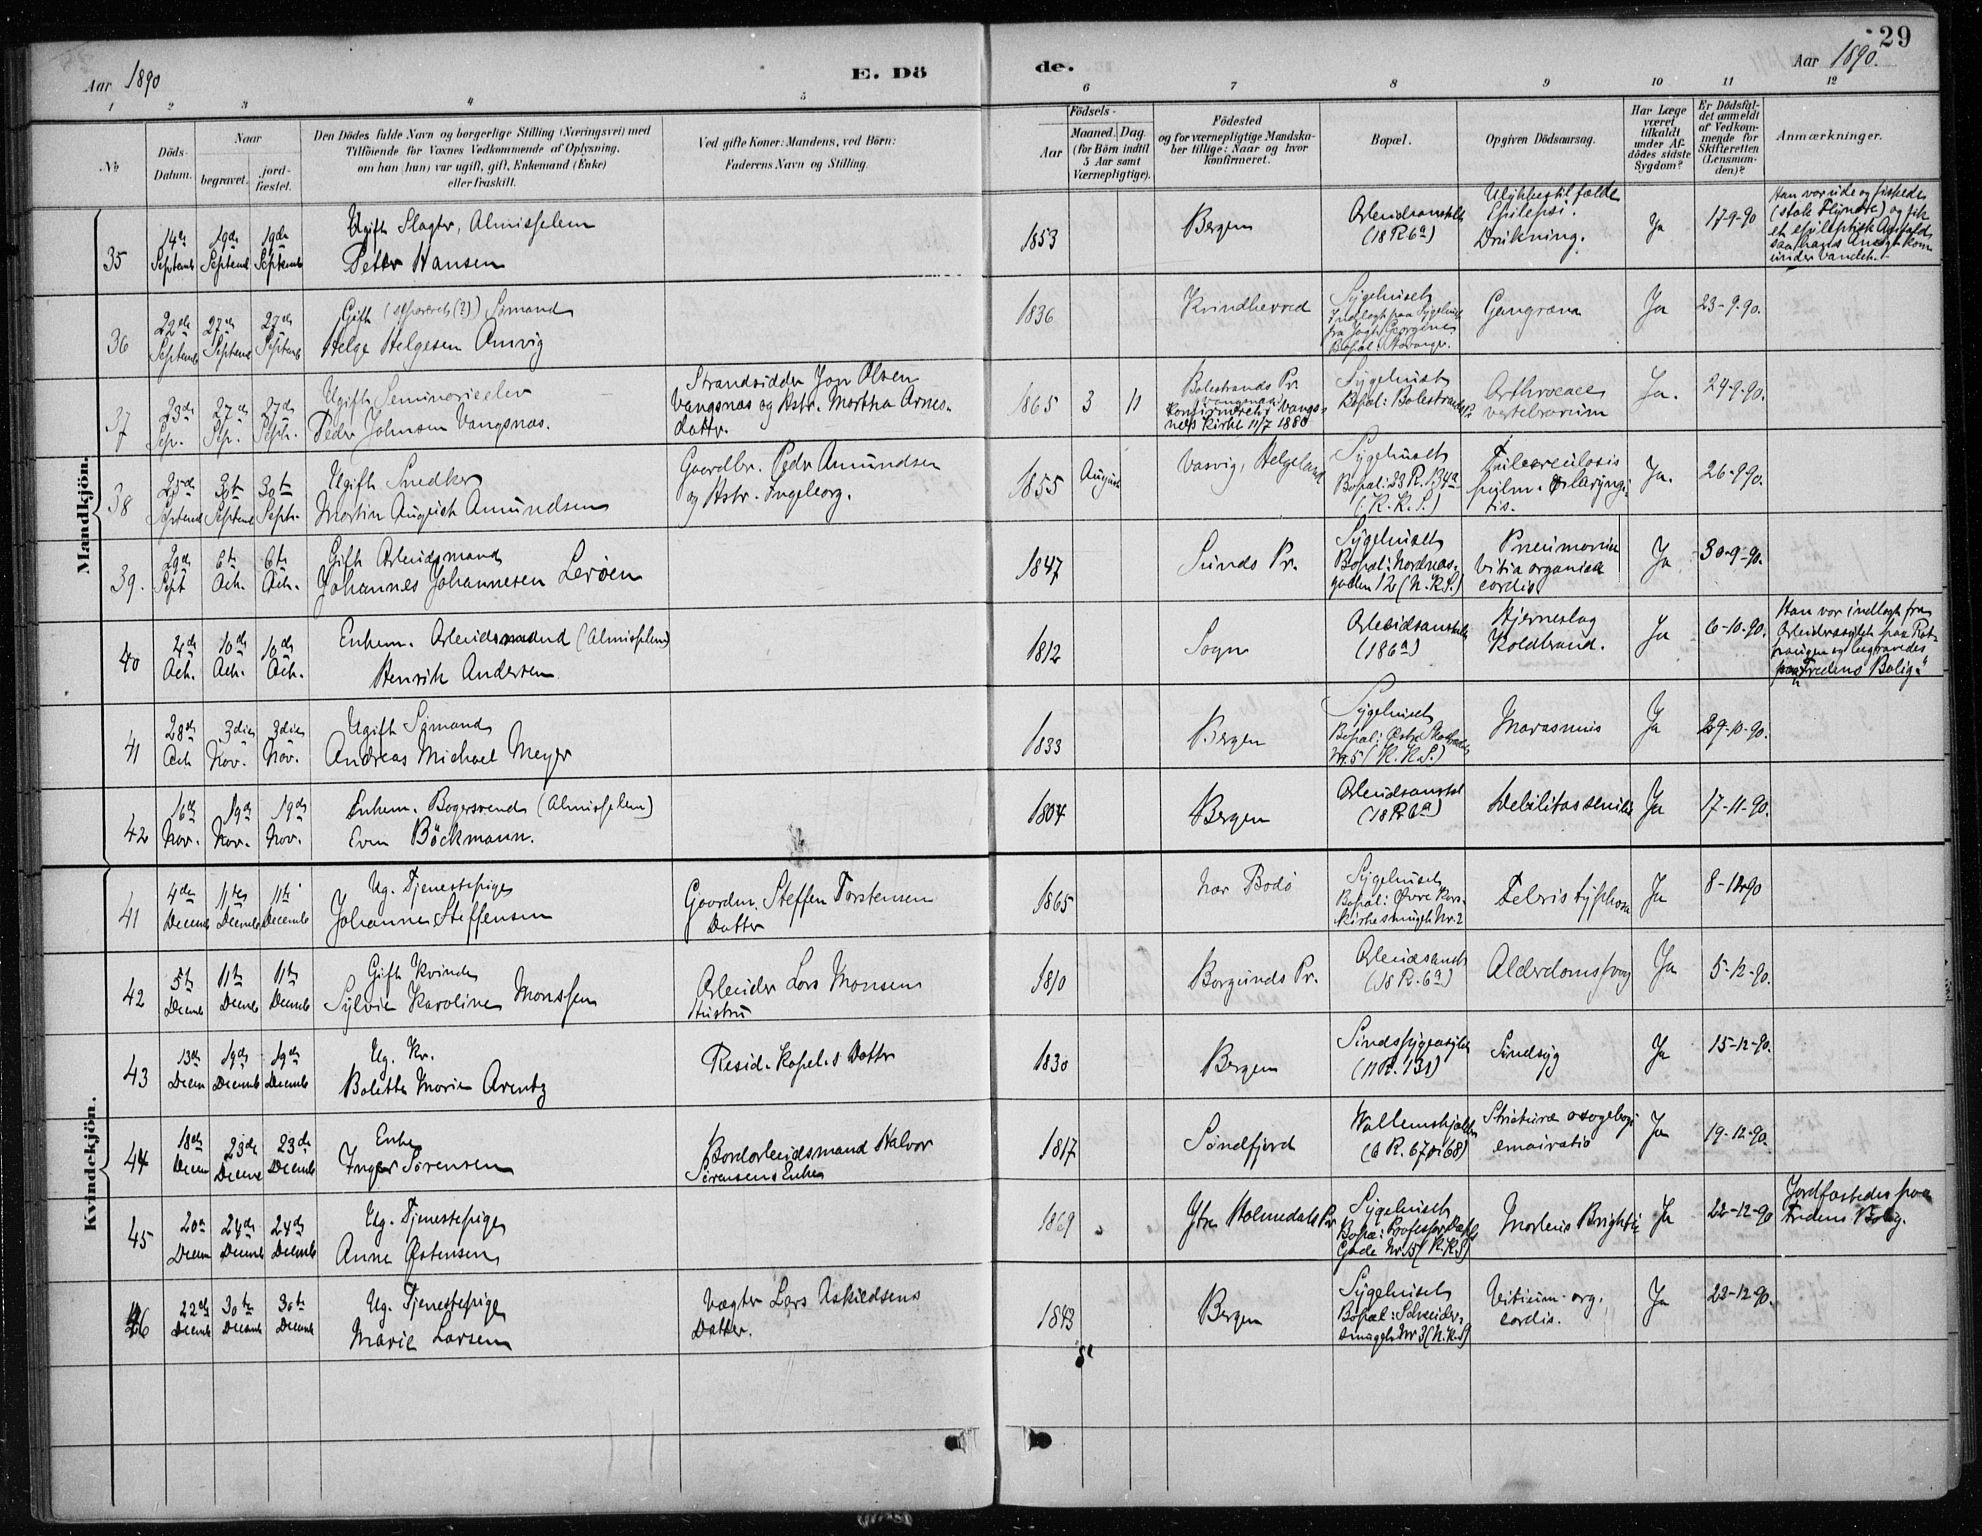 29
Aar 1890
E. Dö
de.
Aar 1890.
1 2 3 4 5 6 7 8 9 10 11 12
No
Döds-
Datum.
Naar
begravet.
jord-
fæstet.
Den Dödes fulde Navn og borgerlige Stilling (Næringsvei) med
Tilföiende for Voxnes Vedkommende af Oplysning,
om han (hun) var ugift, gift, Enkemand (Enke)
eller fraskilt.
Ved gifte Koner: Mandens, ved Börn:
Faderens Navn og Stilling.
Födsels-
Aar
Maaned. Dag.
(for Börn indtil
5 Aar samt
Værnepligtige).
Födested
og for værnepligtige Mandska-
ber tillige: Naar og hvor
konfirmeret.
Bopæl.
Opgiven Dödsaarsag.
Har Læge
været
tilkaldt
under Af-
dödes sidste
Sygdom?
Er Dödsfal-
det anmeldt
af Vedkom-
mende for
Skifteretten
(Lensman-
den)?
Anmærkninger.
Mandkjön.
35
14de
Septemb
19de
Septemb
19de
Septemb
Ugift Slagter, Almisselem
Petter Hansen
1853
Bergen
Arbeidsanstalt
(18 R 6a)
Epilepsi.
Drukning.
Ja
17-9-90
Han var ude og fiskede
(stak Flyndre) og fik
et epileptisk Anfald
saa hans Ansigt kom
under Vandet.
36
22de
Septemb
27de
Septemb
27de
Septemb
Gift (separeret (?)) Sömand
Helge Helgesen Amvig
1836
Kvindherred
Sygehuset
Indlagt paa Sygehuset
Bopæl: Stavanger.
Gangræna
Ja
23-9-90.
37
23de
Sep.
27de
Sep.
27de
Sept.
Ugift Seminarieelev
Peder Johnsen Vangsnæs.
Strandsidder Jon Olsen
Vangsnæs og Hstr. Martha Arnes-
datter.
1865 3 11
Balestrands Pr.
Konfirmeret i Vangs-
næs Kirke 11/7 1880
Sygehuset
Bopæl: Balestrand
Arthrocace
vertebrarum
Ja.
24-9-90.
38
25de
Septemb
30te
Septemb
30te
Septr.
Ugift Snedker
Martin August Amundsen
Gaardbr. Peder Amundsen
og Hstr. Ingeborg.
1855 August
Vasvig, Helgeland
Sygehuset
Bopæl: 23 R. 134a
(K. K. S.)
Tuberculosis
pulm. & laryngi-
tis.
Ja.
26-9-90.
39.
29de
Sept
6te
Oct.
6te
Oct.
Gift Arbeidsmand
Johannes Johannesen Leröen
1847
Sunds Pr.
Sygehuset
Bopæl: Nordnæs-
gaden 12 (N. K. S.)
Pneumonia
vitia organica
cordis.
Ja
30-9-90.
40
4de
Oct.
10de
Oct.
10de
Oct.
Enkem. Arbeidsmand (Almisselem)
Henrik Andersen
1812
Sogn
Arbeidsanstalt
(18 6a)
Hjerneslag
Koldbrand.
Ja
6-10-90.
Han var indlagt fra
og begravedes
"Fredens Bolig"
41
28de
Oct
3die
Nov.
3die
Nov.
Ugift Sömand
Andreas Michael Meyer
1833
Bergen
Sygehuset
Nr. 5 (K. K. S.)
Marasmus
Ja
29-10-90.
42
16de
Nov.
19de
Nov.
19de
Nov.
Enkem. Bagersvend (Almisselem)
Even Böckmann.
1804
Bergen
Arbeidsanstalt
(18 R 6a)
Debilitas senilis
Ja
17-11-90.
Kvindekjön.
41
4de
Decemb
11te
Decemb
11te
Decemb
Ug. Tjenestepige
Johanne Steffensen
Gaardm. Steffen Torstensen
Datter
1865
Nær Bodö
Sygehuset
Bopæl: Övre Kors-
kirkesmuget Nr. 2
Febris typhosa
Ja
8-12-90
42
5te
Decemb
11te
Decemb
11te
Decemb
Gift Kvinde
Sylvie Karoline Monssen
Arbeider Lars Monsen
Hustru
1810
Borgunds Pr.
Arbeidsanst
(18 R. 6a)
Alderdomssvag
Ja
5-12-90.
43
13de
Decem
19de
Decemb
19de
Decemb
Ug. Kv.
Bolette Marie Arentz
Resid. Kapel.s Datter
1830
Bergen
Sindssygeasylet
(11 R. 131)
Sindsyg
Ja
15-12-90.
44
18de
Decem
23de
Decemb
23de
Decemb
Enke
Inger Sörensen
Bordarbeidsmand Halvor
Sörensens Enke
1817
Söndfjord
(6 R. 67 & 68)
Ja
19-12-90.
45
20de
Decem
24de
Decemb
24de
Decemb
Ug. Tjenestepige
Anne Østensen
1869
Ytre Holmedals Pr.
Sygehuset
Bopæl: Professor Dahls
Gade Nr. 15 (K. K. S)
Morbus Brightii
Ja
22-12-90
Jordfæstedes paa
Fredens Bolig.
46
22de
Decemb
30te
Decemb
30te
Decemb
Ug. Tjenestepige
Marie Larsen
Vægter Lars Askildsens
Datter.
1843
Bergen
Sygehuset
Bopæl: Schreider-
smuget Nr 3 (N. K. S)
Vitium org.
cordis.
Ja
22-12-90.